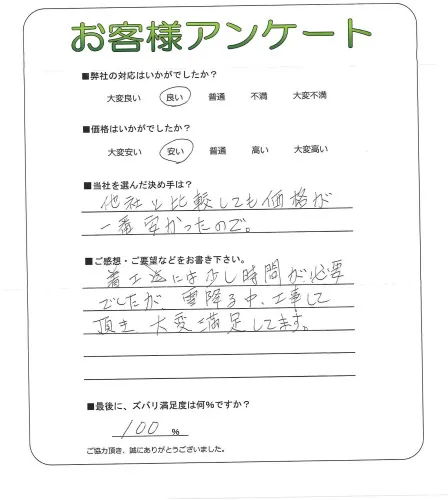 お客様アンケート
■弊社の対応はいかがでしたか?
大変良い 良い 普通 不満 大変不満
■価格はいかがでしたか?
大変安い 安い 普通 高い 大変高い
■当社を選んだ決め手は?
他社と比較しても価格が
一番安かったので。
■ご感想・ご要望などをお書き下さい。
着工迄には少し時間が必要
でしたが、雪降る中、工事して
頂き 大変満足してます。
■最後に、ズバリ満足度は何%ですか?
100 %
ご協力頂き、誠にありがとうございました。